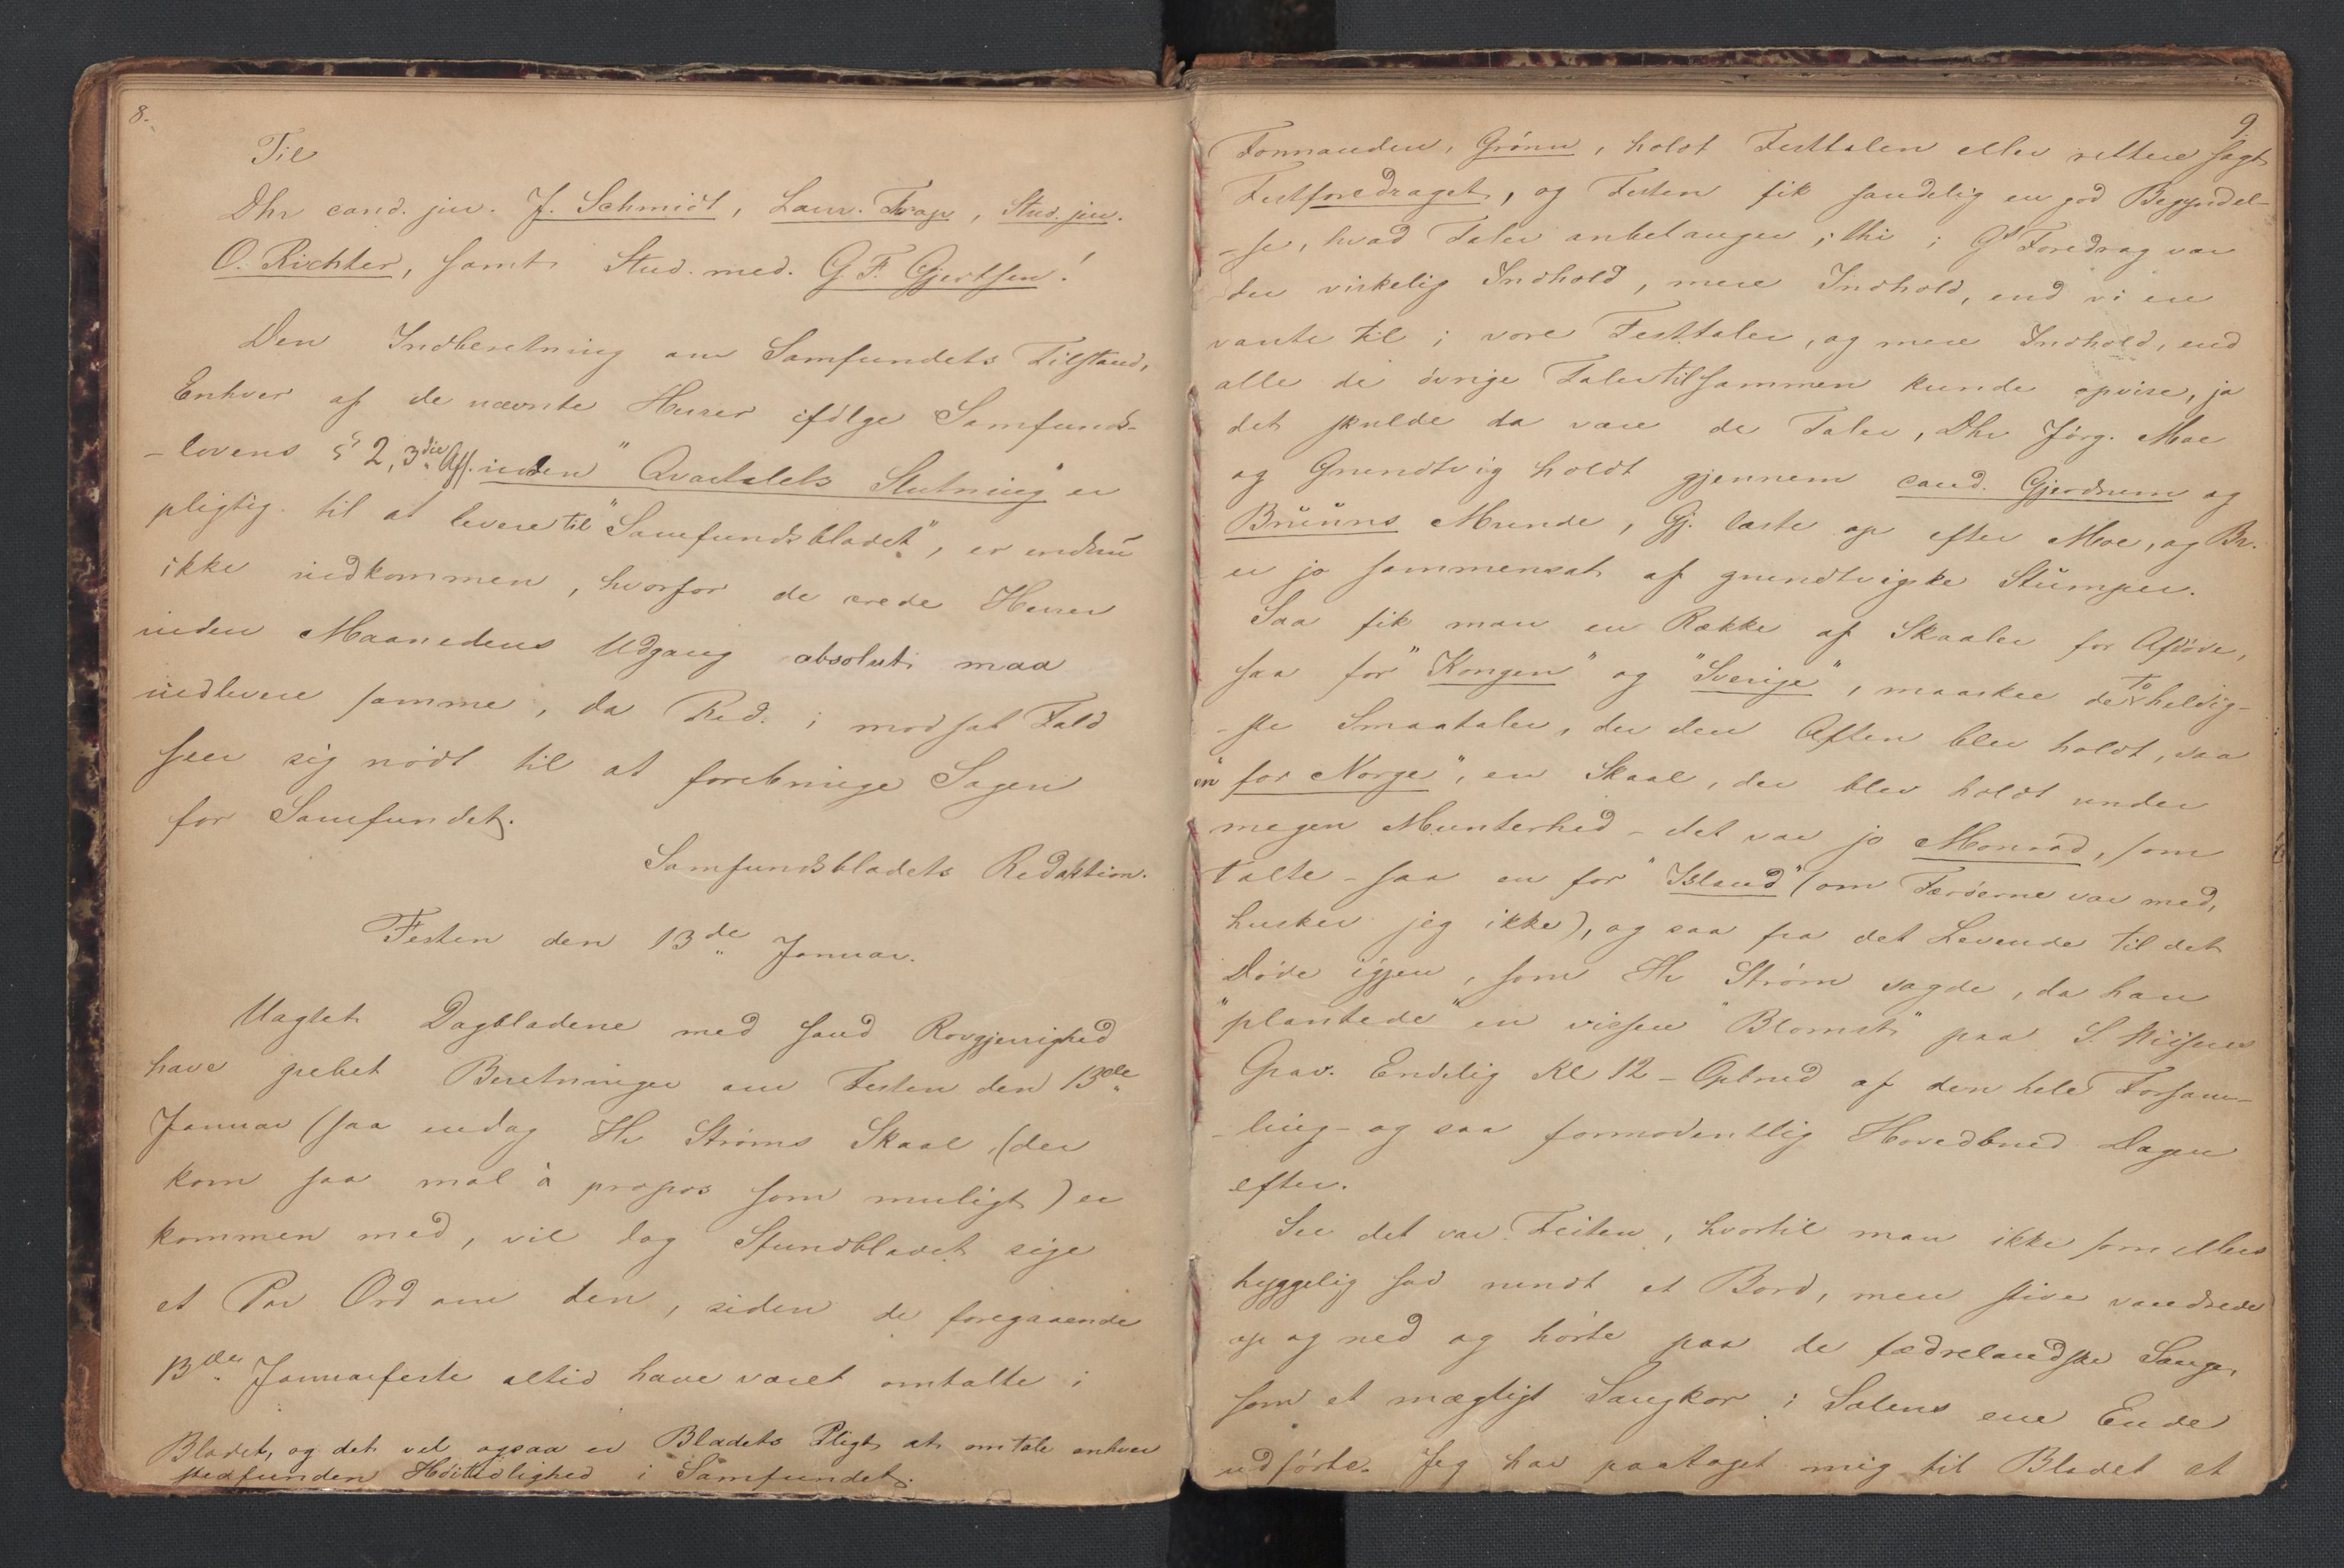 8.
Til
Dhr cand. jur. J. Schmidt, Laur. Trap, Stud. jur.
O. Richter, samt Stud. med. G. F. Gjertsen!
Den Indberetning om Samfundets Tilstand,
Enhver af de nævnte Herrer ifölge Samfunds-
-lovens § 2, 3die Aff. inden "Qvartalets Slutning" er
pligtig til at levere til "Samfundsbladet", er endnu
ikke indkommen, hvorfor de ærede Herrer
inden Maanedens Udgang absolut maa
indlevere samme, da Red. i modsat Fald
seer sig nödt til at forebringe Sagen
for Samfundet.
Samfundsbladets Redaktion.
Festen den 13de Januar.
Uagtet Dagbladene med sand Rovgjerrighed
have grebet Beretninger om Festen den 13de
Januar (saa endog Hr Ströms Skaal, (der
kom saa mal à propos som muligt) er
kommen med, vil dog Sfundbladet sige
et Par Ord om den, siden de foregaaende
13de Januarfeste altid have været omtalte i
Bladet, og det vel ogsaa er Bladets Pligt at omtale enhver
stedfunden Höitidelighed i Samfundet.
9
Formanden, Grönn, holdt Festtalen eller rettere sagt
Festforedraget, og Festen fik sandelig en god Begyndel-
-se, hvad Taler anbelanger; thi i Gs Foredrag var
der virkelig Indhold, mere Indhold, end vi ere
vante til i vore Festtaler, og mere Indhold, end
alle de övrige Taler tilsammen kunde opvise, ja
det skulde da være de Taler, Dhr Jörg. Moe
og Grundtvig holdt gjennem cand. Gjerdrum og
Brüüns Munde, Gj. læste op efter Moe, og Br.
er jo sammensat af grundtvigske Stumper.
Saa fik man en Række af Skaaler for Afdöde,
saa for "Kongen" og "Sverige", maaskee de to heldig-
-ste Smaataler, der den Aften blev holdt, saa
en "for Norge", en Skaal, der blev holdt under
megen Munterhed - det var jo Monrad, som
talte - saa en for "Island" (om Færöerne var med,
husker jeg ikke), og saa fra det Levende til det
Döde igjen, som Hr Ström sagde, da han
"plantede" en vissen "Blomst" paa S. Nissens
Grav. Endelig Kl 12 - Opbrud af den hele Forsam-
-ling - og saa formodentlig Hovedbrud Dagen
efter.
See det var Festen, hvortil man ikke som ellers
hyggelig sad rundt et Bord, men stive vandrede
op og ned og hörte paa de fædrelandske Sange,
som et mægtigt Sangkor i Salens ene Ende
udförte. Jeg har paataget mig til Bladet at